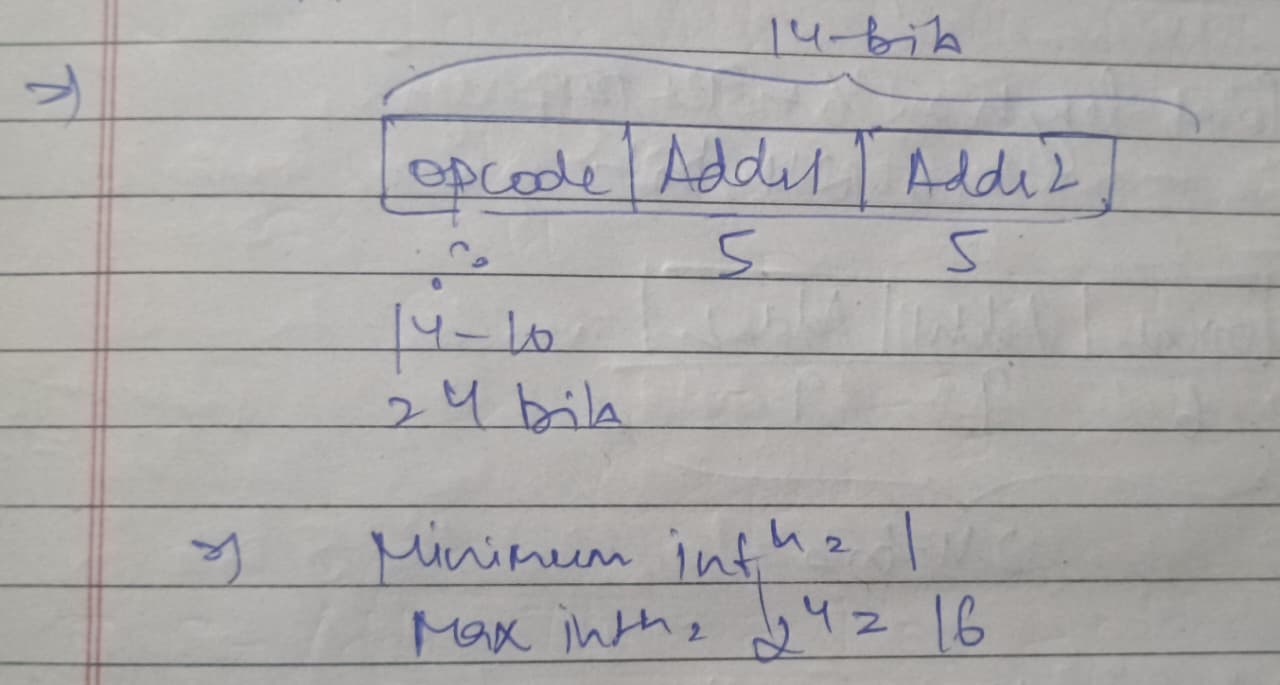 14-bits
opcode Addr1 Addr2
5 5
14-10
= 4 bits
Minimum instn = 1
Max instn = 2⁴ = 16